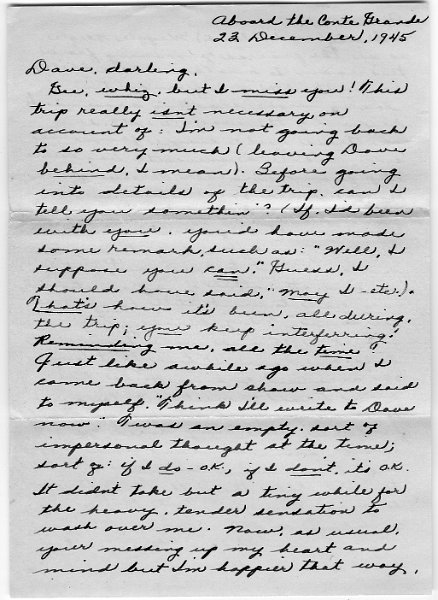 Aboard the Conte Grande
23 December, 1945
Dave, darling,
Gee, whiz, but I miss you! This
trip really isnt necessary on
account of: I'm not going back
to so very much (leaving Dave
behind, I mean). Before going
into details of the trip, can I
tell you somethin'? (If I'd been
with you, you'd have made
some remark, such as: "Well, I
suppose you can," Guess, I
should have said, "may I-etc.).
That's how it's been, all during,
the trip; your keep interferring.
Reminding me, all the time!
Just like awhile ago when I
came back from show and said
to myself, "Think I'll write to Dave
now." Twas an empty, sort of
impersonal thought at the time;
sort of: if I do - OK, if I dont, its OK.
It didnt take but a tiny while for
the heavy, tender sensation to
wash over me. Now, as usual,
your messing up my heart and
mind but I'm happier that way.